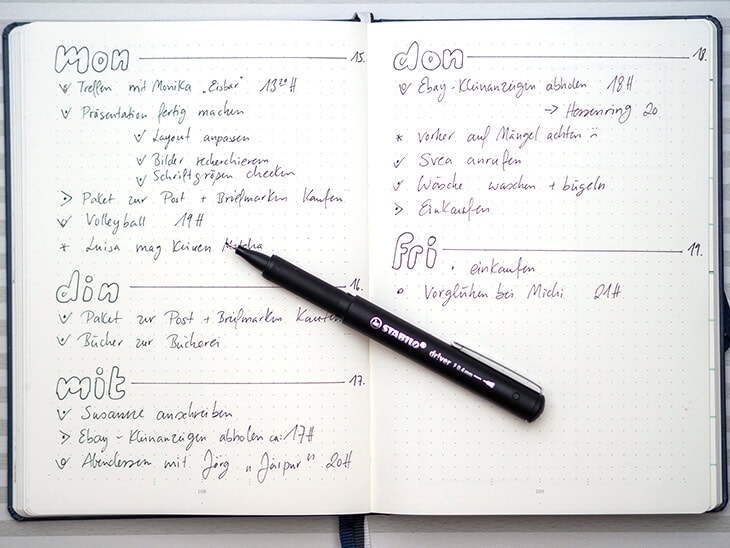 mon 15.
Treffen mit Monika „Eisbär" 13³⁰H
Präsentation fertig machen
Layout anpassen
Bilder recherchieren
Schriftgrößen checken
> Paket zur Post + Briefmarken kaufen
Volleyball 19H
* Luisa mag keinen Matcha
din 16.
Paket zur Post + Briefmarken kaufen
Bücher zur Bücherei
mit 17.
Susanne anschreiben
> Ebay-Kleinanzeigen abholen ca: 17H
Abendessen mit Jörg „Jaipur" 20H
108
don 18.
Ebay-Kleinanzeigen abholen 18H
→ Hessenring 20
* vorher auf Mängel achten
Svea anrufen
Wäsche waschen + bügeln
> Einkaufen
fri 19.
• einkaufen
Vorglühen bei Michi 21H
STABILO® driver
109